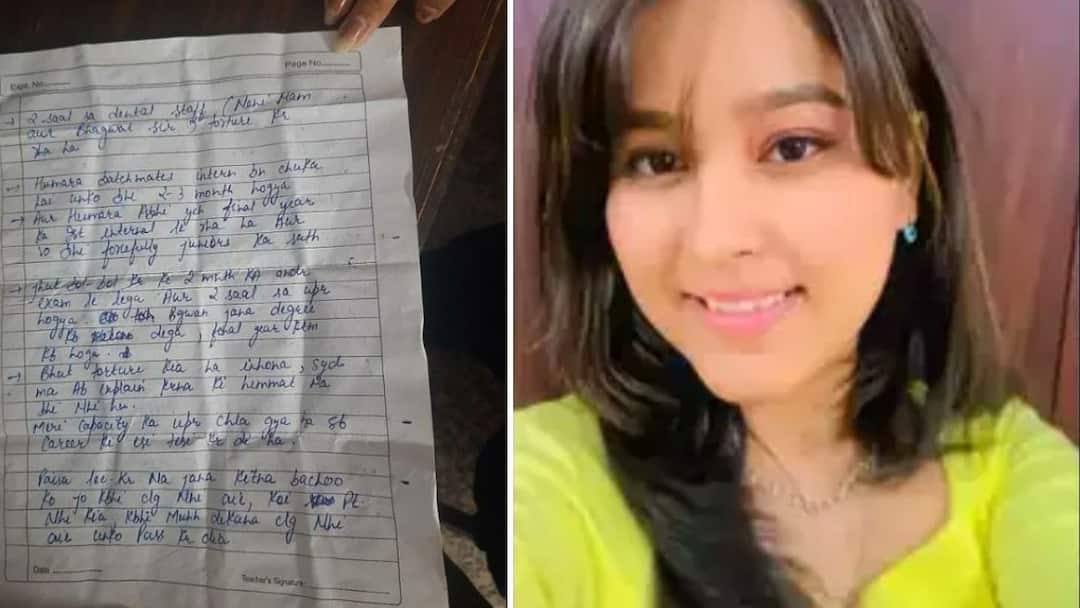 Expt. No.
Page No.
→ 2 saal sa dental staff (
Mam
aur Bhagwat Sir ja torture kr
rha ha
→ Humara batchmates intern bn chuka
hai unko bhi 2-3 month hogya
→ Aur Humara Abhi yeh final year
ka 1st internal le rha ha Aur
so bhi forcefully juniors ka sath
→ jhut bol-bol kr ke 2 month ka andr
exam le lega Aur 2 saal sa upr
hogya. Bgwan jana degree
kb dega, final year kb
kb hoga.
→ Bhut torture kia ha inhona,
ma Ab explain krna ki himmat ha
bhi Nhi hu.
Meri capacity ka upr chla gya ha sb
Career ki esi tesi kr di ha.
Paisa lee kr Na jana kitna bachoo
ko jo kbhi clg Nhi aie, koi
Nhi kia, kbhi Muhh dekhana clg Nhi
aie unko Pass kr dia
Date
Teacher's Signature